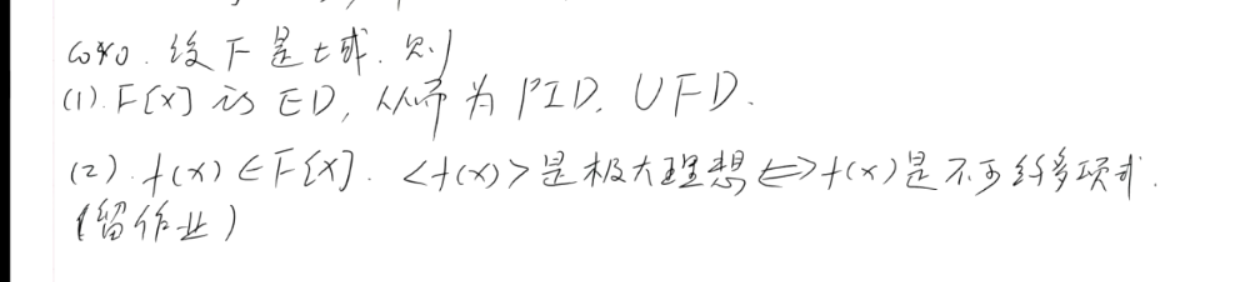 Coro. 设 F 是域. 则
(1). F[x] is ED, 从而为 PID. UFD.
(2). f(x) ∈ F[x]. <f(x)> 是极大理想 ⇔ f(x) 是不可约多项式.
(留作业)